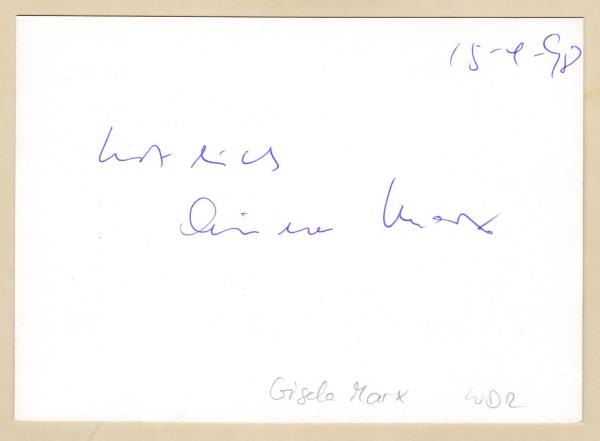 15-4-98
herzlich
Gisela Marx
Gisela Marx WDR